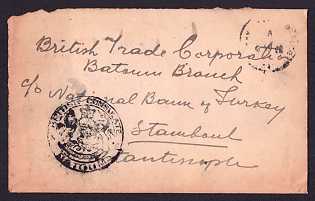 British Trade Corporation
Batoum Branch
c/o National Bank of Turkey
Stamboul
Constantinople
BRITISH CONSULATE